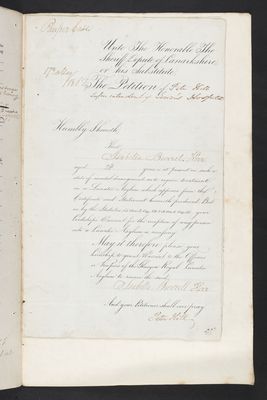 Pauper Case
Unto The Honorable The
Sheriff Depute of Lanarkshire,
or his Substitute
17th May
The Petition of Peter Hill
Superintendent of Lunacy
Humbly Sheweth
That
Isabella Burrell Kerr
aged 28 years is at present in such a
state of mental derangement as to require treatment
in a Lunatic Asylum which appears from the
Certificate and Statement herewith produced. But
as by the Statutes your
Lordships Warrant for the reception of any person
into a Lunatic Asylum is necessary
May it therefore please your
Lordship to grant Warrant to the Officers
or Keepers of the Glasgow Royal Lunatic
Asylum to receive the said
Isabella Burrell Kerr
And your Petitioner shall ever pray
Peter Hill